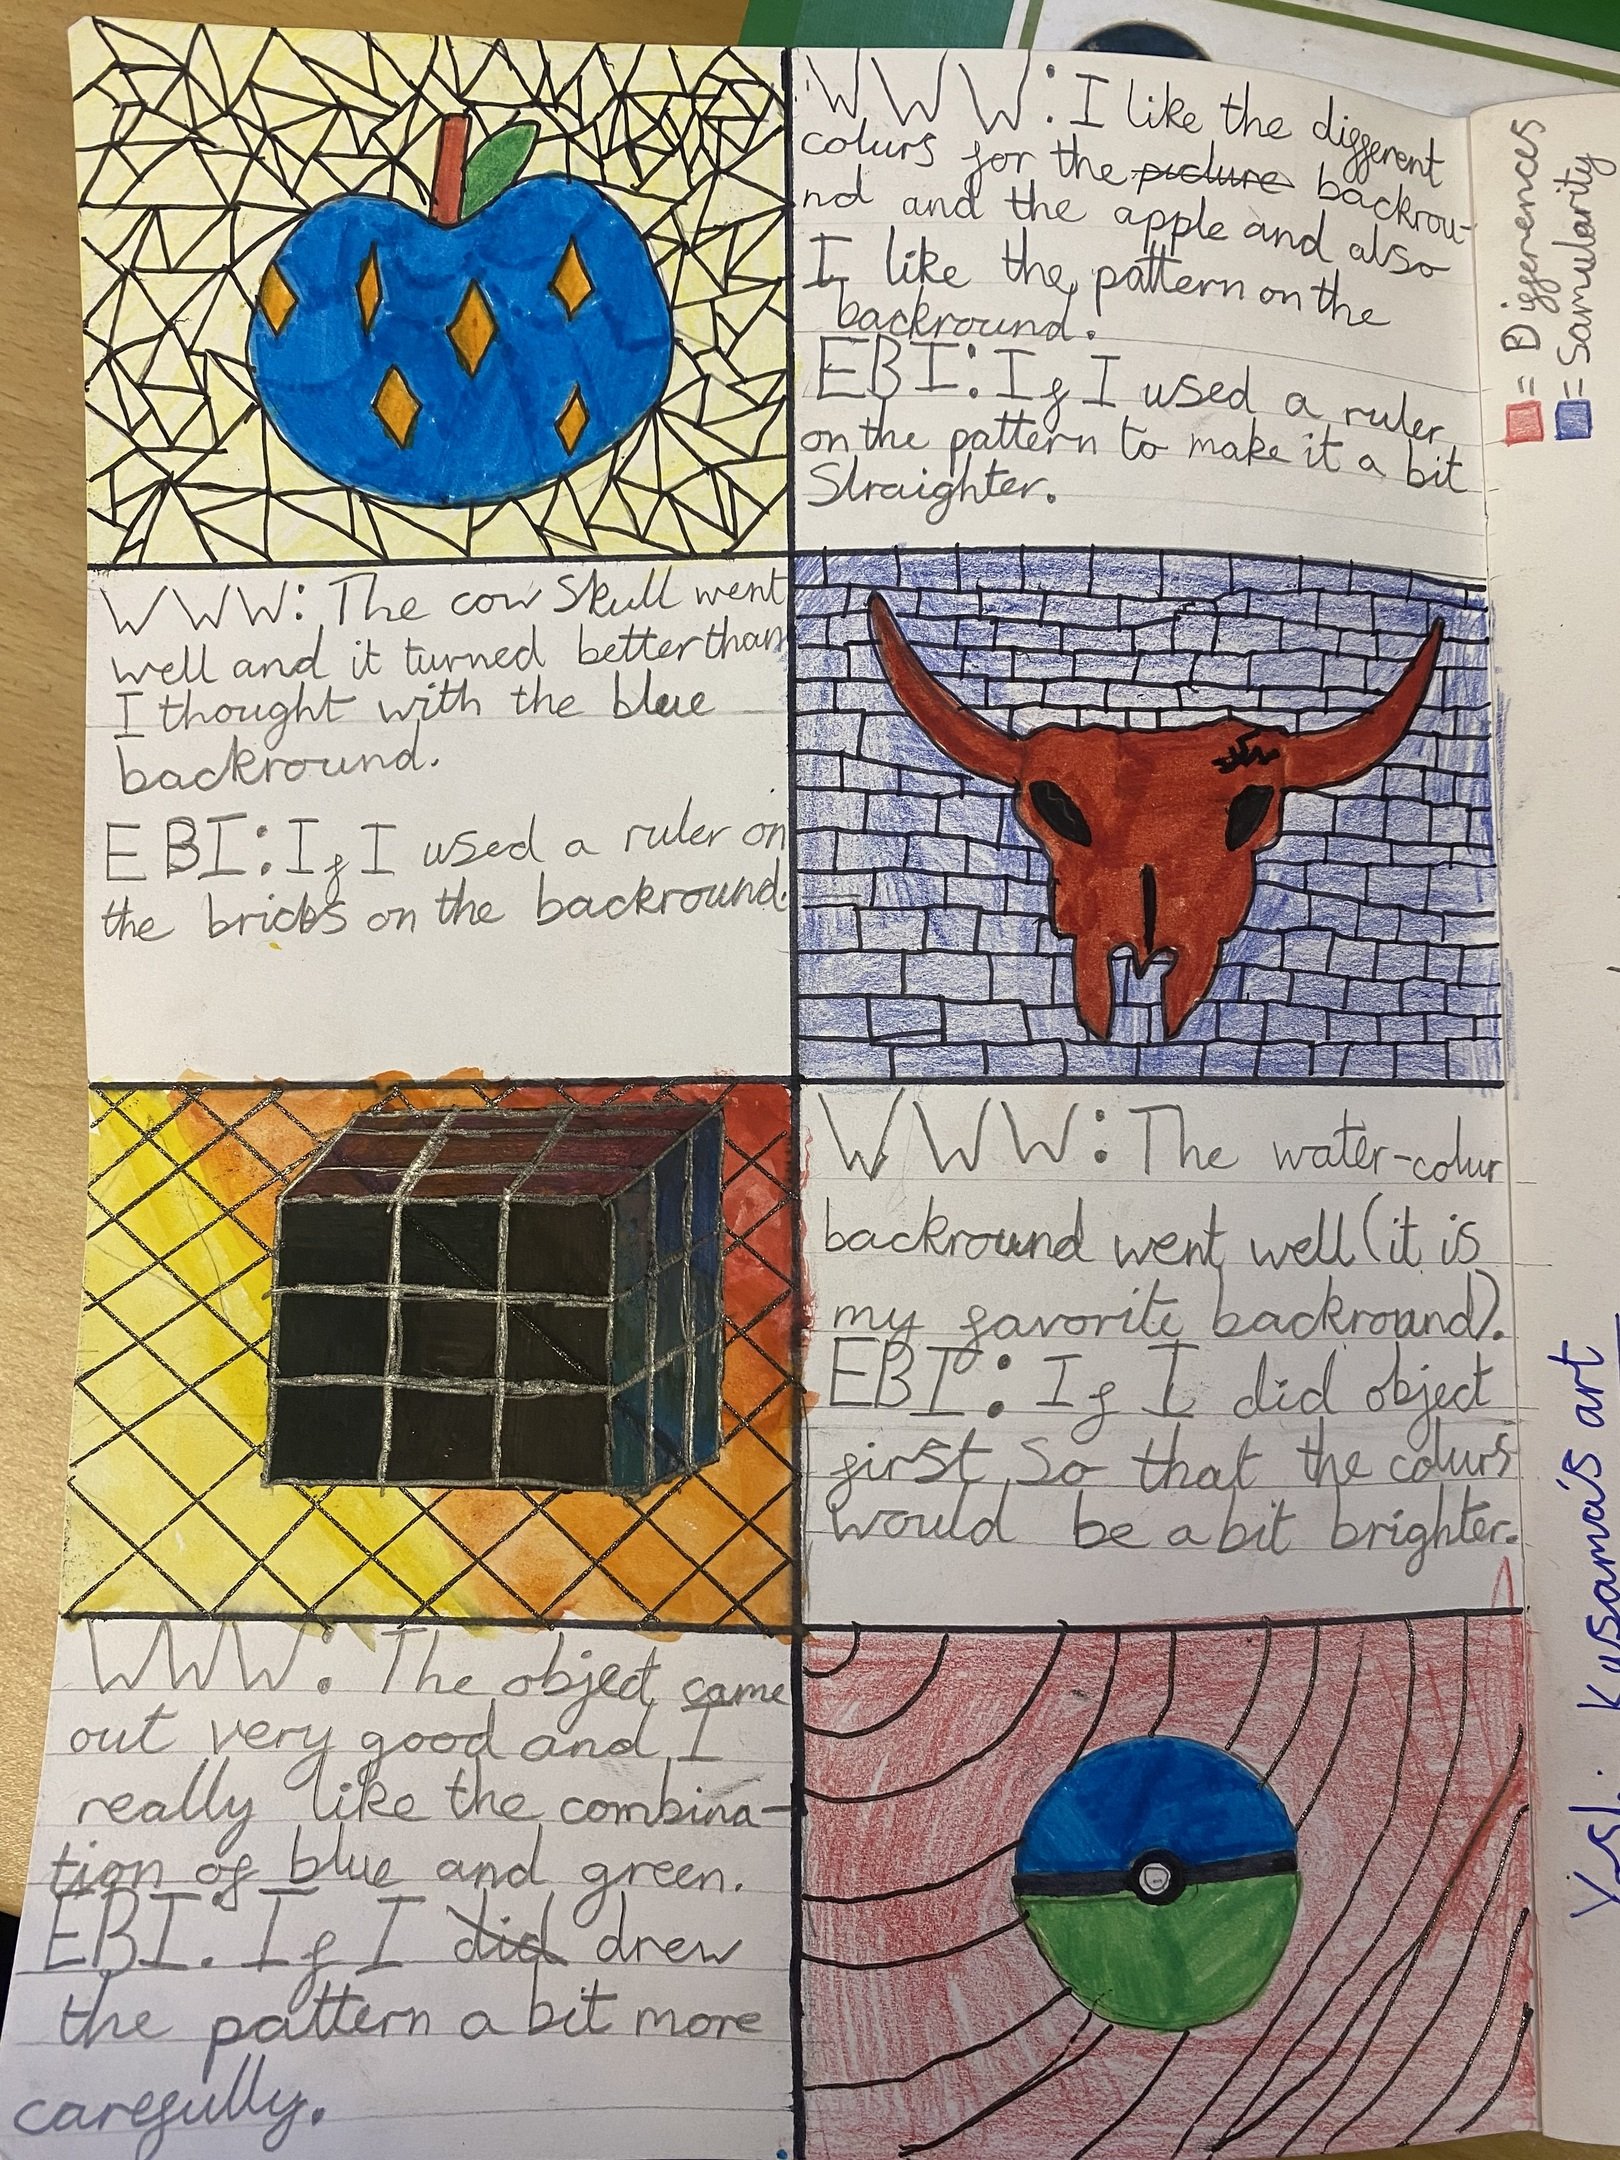 WWW: I like the different
colurs for the picture backrou-
nd and the apple and also
I like the pattern on the
backround.
EBI: If I used a ruler
on the pattern to make it a bit
Straighter.
WWW: The cow Skull went
well and it turned better than
I thought with the blue
backround.
EBI: If I used a ruler on
the bricks on the backround.
WWW: The water-colur
backround went well (it is
my favorite backround).
EBI: If I did object
first so that the colurs
would be a bit brighter.
WWW: The object came
out very good and I
really like the combina-
tion of blue and green.
EBI. If I did drew
the pattern a bit more
carefully.
= Differences
= Samularity
Kusama's art